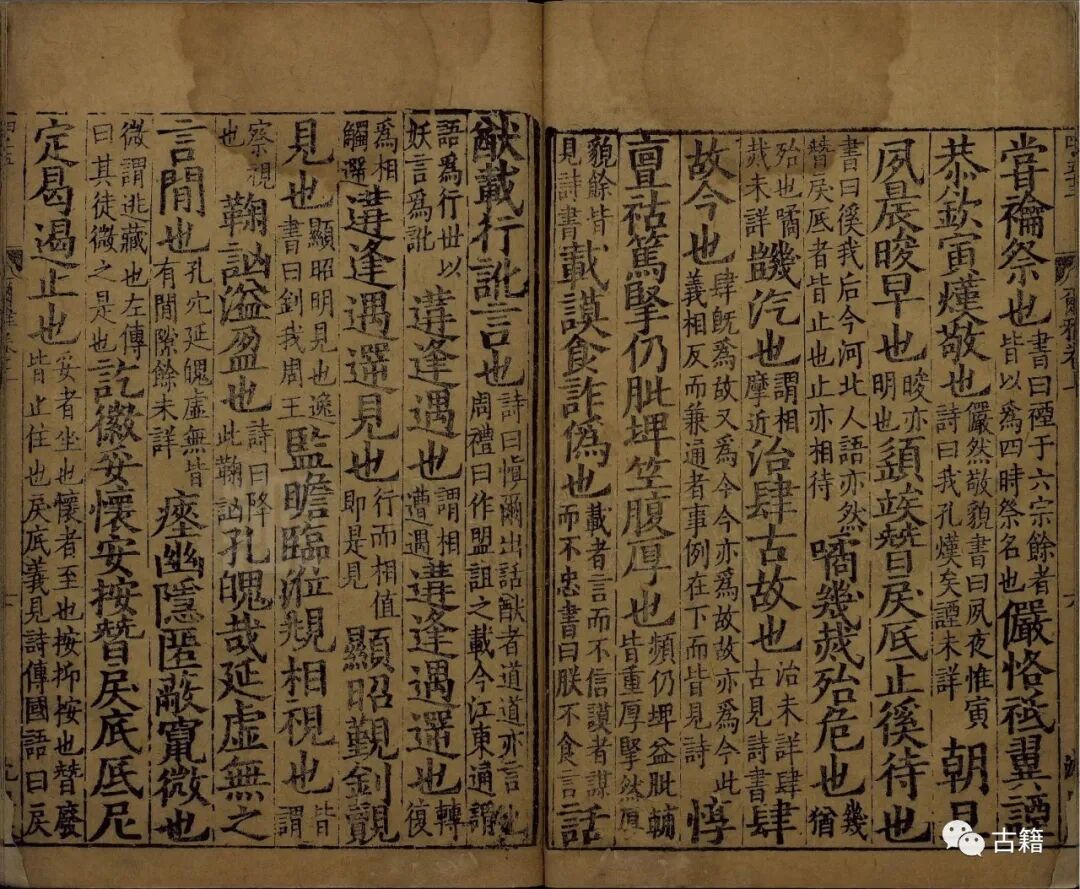 嘗禴祭也書曰禋于六宗餘者皆以為四時祭名也儼恪祗翼諲
恭欽寅熯敬也儼然敬貌書曰夙夜惟寅詩曰我孔熯矣諲未詳朝旦
夙晨晙早也晙亦明也須竢替戾厎止徯待也
書曰徯我后今河北人語亦然替戾厎者皆止也止亦相待噊幾烖殆危也幾猶
殆也噊烖未詳譏汽也謂相摩近治肆古故也治未詳肆古見詩書肆
故今也肆既為故又為今今亦為故故亦為今此義相反而兼通者事例在下而皆見詩惇
亶祜篤掔仍肶埤竺腹厚也頻仍埤益肶輔皆重厚掔然厚
貌餘皆見詩書載謨食詐偽也載者言而不信謨者謀而不忠書曰朕不食言話
猷載行訛言也詩曰慎爾出話猷者道道亦言周禮曰作盟詛之載今江東通謂
語為行世以妖言為訛遘逢遇也謂相遭遇遘逢遇遻也轉復
為相觸遻遘逢遇遻見也行而相值即是見顯昭覲釗覿
見也顯昭明見也逸書曰釗我周王監瞻臨涖頫相視也皆謂
察視也鞠訩溢盈也詩曰降此鞠訩孔魄哉延虛無之
言間也孔穴延魄虛無皆有間隙餘未詳瘞幽隱匿蔽竄微也
微謂逃藏也左傳曰其徒微之是也訖徽妥懷安按替戾底厎尼
定曷遏止也妥者坐也懷者至也按抑按也替廢皆止住也戾底義見詩傳國語曰戾
古籍